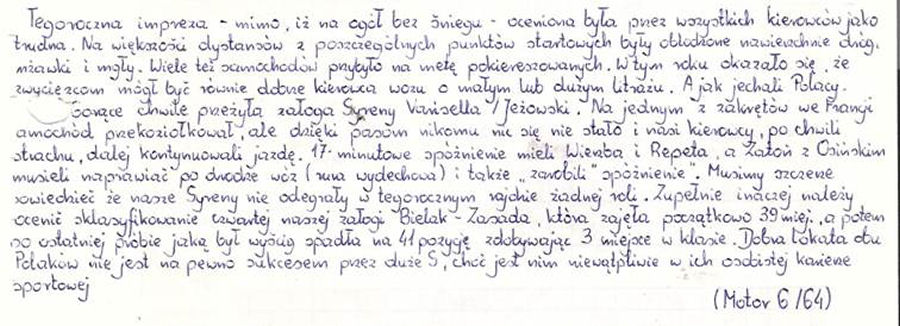 Tegoroczna impreza - mimo, iż na ogół bez śniegu - oceniona była przez wszystkich kierowców jako
trudna. Na większości dystansów z poszczególnych punktów startowych były oblodzone nawierzchnie dróg,
mżawki i mgły. Wiele też samochodów przybyło na metę pokiereszowanych. W tym roku okazało się, że
zwycięzcom mógł być równie dobrze kierowca wozu o małym lub dużym litrażu. A jak jechali Polacy.
Gorące chwile przeżyła załoga Syreny Varisella / Jeżowski. Na jednym z zakrętów we Francji
amochód przekoziołkował, ale dzięki pasom nikomu nic się nie stało i nasi kierowcy, po chwili
strachu, dalej kontynuowali jazdę. 17-minutowe spóźnienie mieli Wierzba i Repeta, a Zatoń z Osińskim
musieli naprawiać po drodze wóz (rura wydechowa) i także „zarobili" spóźnienie". Musimy szczerze
powiedzieć że nasze Syreny nie odegrały w tegorocznym rajdzie żadnej roli. Zupełnie inaczej należy
ocenić sklasyfikowanie czwartej naszej załogi - Bielak - Zasada, która zajęła początkowo 39 miej., a potem
po ostatniej próbie jaką był wyścig spadła na 41 pozycję zdobywając 3 miejsce w klasie. Dobra lokata obu
Polaków nie jest na pewno sukcesem przez duże S, choć jest nim niewątpliwie w ich osobistej karierze
sportowej
(Motor 6/64)